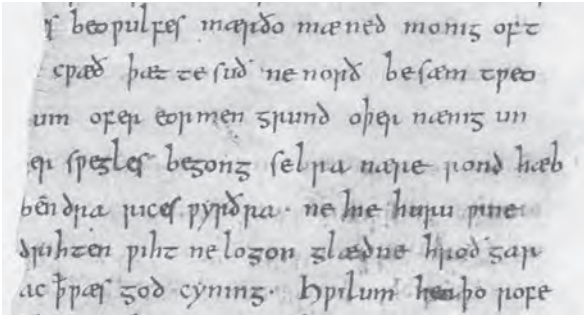 s beoƿulfes mærðo mæned monig oft
cƿæð þæt te suð ne norð be sæm tƿeo
um ofer eormen grund oþer nænig un
er sƿegles begong selra nære rond hæb
bendra rices ƿyrðra· ne hie huru ƿine
drihten ƿiht ne logon glædne hroð gar
ac ꝥ ƿæs god cyning· Hƿilum heaþo rofe